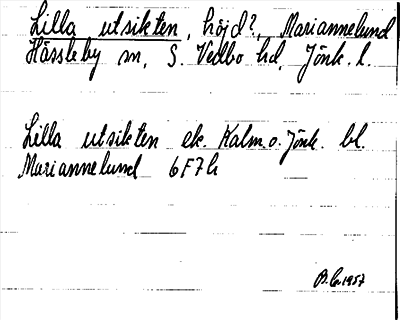 Lilla utsikten, höjd?, Mariannelund
Hässleby sn, S. Vedbo hd, Jönk. l.
Lilla utsikten ek. Kalm.o.Jönk. bl.
Mariannelund 6F7h
1957